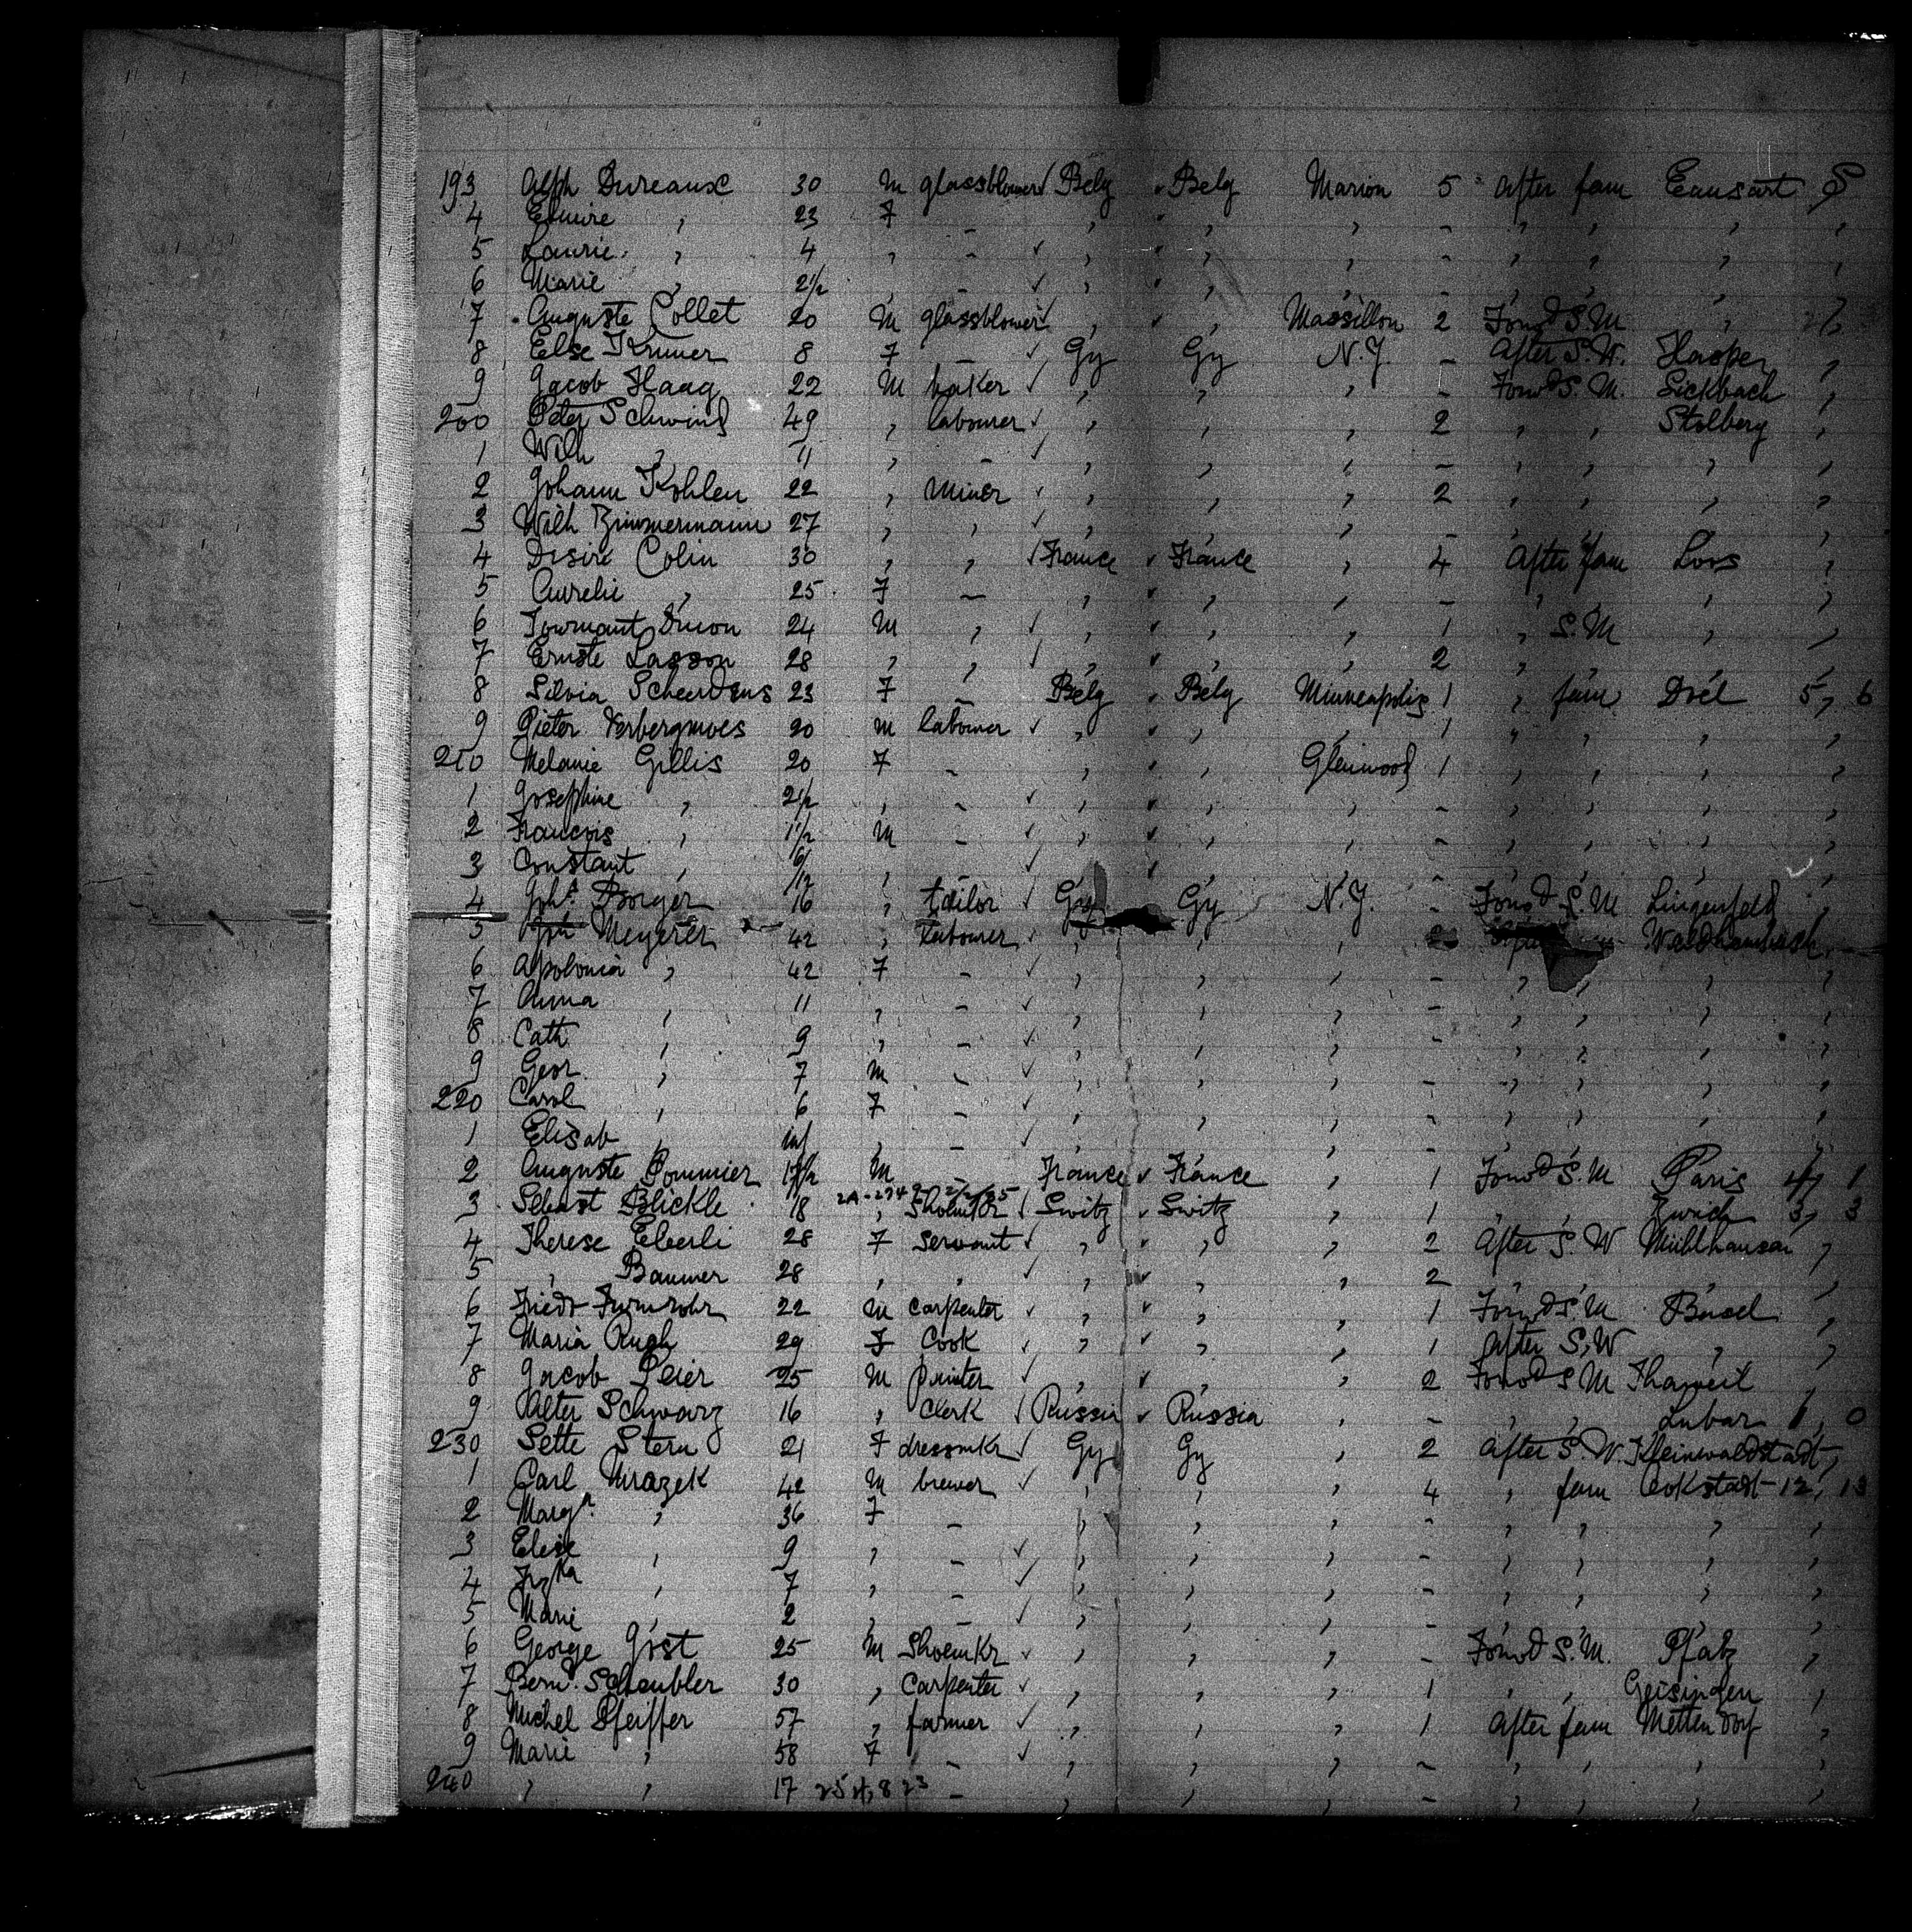 193 Alph Dureaux 30 m glassblower √ Belg ✓ Belg Marion 5 After fam
4 Elmire , 23 7 - , ✓ , , - , , , ,
5 Laurie , 4 , - ✓ , ✓ , , - , , , ,
6 Marie , 2½ , - ✓ , ✓ , , - , , , ,
7 Auguste Collet 20 m glassblower ✓ , ✓ , Massillon 2 Forwd S. M ,
8 Else 8 7 - ✓ Gy Gy N.Y. - After S. W. ,
9 Jacob Haag 22 m baker ✓ , , , - Forwd S. M. Sickbach ,
200 Peter Schwind 49 , labourer ✓ , , , 2 , , Stolberg ,
1 Wilh , 11 , - ✓ , , , - , , , ,
2 Johann Kohlen 22 , miner ✓ , , , 2 , , , ,
3 Wilh Zimmermann 27 , , ✓ , , , - , , , ,
4 Desiré Colin 30 , , √ France ✓ France , 4 After fam ,
5 Aurelie , 25 7 - , ✓ , , - , , , ,
6 24 m , ✓ , ✓ , , 1 , S. M , ,
7 Ernste Lasson 28 , , ✓ , ✓ , , 2 ,
8 Silvia 23 7 - Belg ✓ Belg Minneapolis 1 , fam Doel 5, 6
9 Pieter 20 m labourer ✓ , ✓ , , 1 , , , ,
210 Melanie Gillis 20 7 - , ✓ , Glenwood 1 , , , ,
1 Josephine , 2½ , - ✓ , ✓ , , - , , , ,
2 Francois , 1½ m - , ✓ , , - , , , ,
3 Constant , , - ✓ , ✓ , , - , , , ,
4 Johs Borger 16 , tailor ✓ Gy Gy N.Y. - Forwd S. M Lingenfeld ,
5 Joh Meyerer 42 , labourer ✓ , , ,
6 Apolonia , 42 7 - ✓ , , , - , , , ,
7 Anna , 11 , - ✓ , , , - , , , ,
8 Cath , 9 , - ✓ , , , - , , , ,
9 Geor , 7 m - ✓ , , , - , , , ,
220 Carol , 6 7 - , , , - , , , ,
1 Elisab , inf , - ✓ , , , - , , , ,
2 Auguste Pommier m - France ✓ France , 1 Forwd S. M Paris 4, 1
3 Sebast Blickle 18 , √ Switz ✓ Switz , 1 , , Zurich 3, 3
4 Therese Eberli 28 7 servant ✓ , ✓ , , 2 After S. W Mühlhausen ,
5 , Baumer 28 , , ✓ , ✓ , , 2 , , , ,
6 Friedr Furnrohr 22 m carpenter ✓ , ✓ , , 1 Forwd S. M Basel ,
7 Maria 29 7 Cook ✓ , ✓ , , 1 After S. W , ,
8 Jacob Peier 25 m ✓ , ✓ , , 2 Forwd S M Thalweil
9 Alter Schwarz 16 , Clerk √ Russia ✓ Russia , - , , Lubar 1, 0
230 Sette Stern 21 7 dressmkr √ Gy Gy , 2 After S. W. Kleinwaldstadt ,
1 Carl Mrazek 42 m brewer ✓ , , , 4 , fam 12, 13
2 Margr. , 36 7 - , , , - , , , ,
3 Elise , 9 , - ✓ , , , - , , , ,
4 , 7 , - ✓ , , , - , , , ,
5 Marie , 2 , - ✓ , , , - , , , ,
6 George Jost 25 m Shoemkr ✓ , , , - Forwd S. M. Pfalz ,
7 Bernd. Scheubler 30 , Carpenter ✓ , , , 1 , , Geisingen ,
8 Michel Pfeiffer 57 , farmer ✓ , , , 1 After fam Mettendorf ,
9 Marie , 58 7 - ✓ , , , - , , , ,
240 , , 17 - , , , - , , , ,